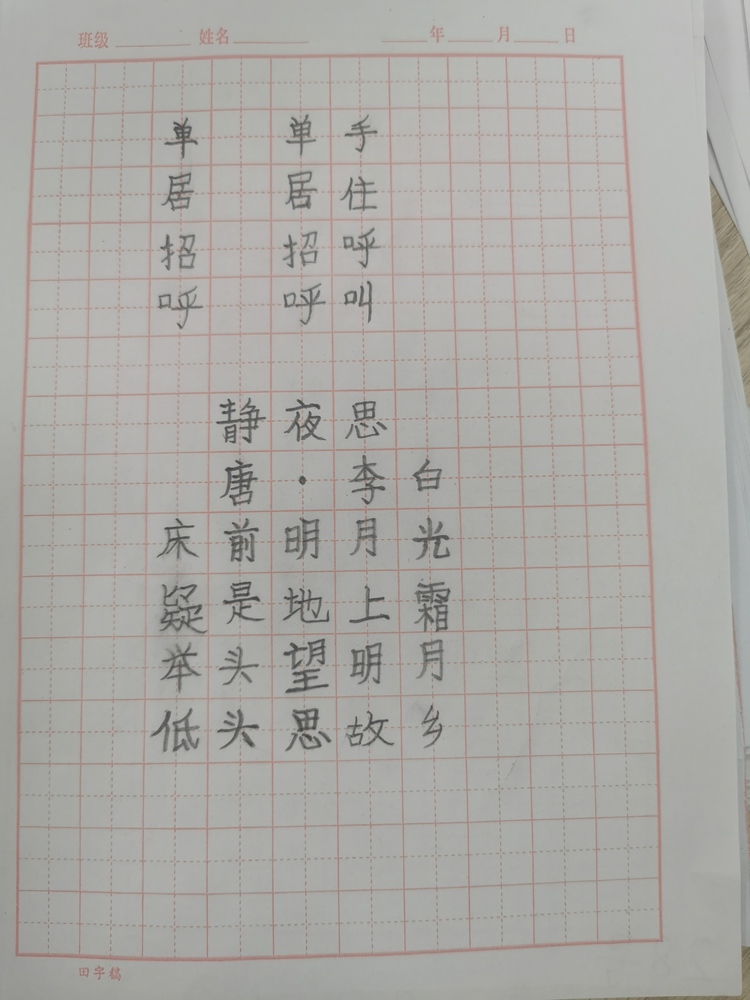 班级 姓名 年 月 日
单 单手
居 居住
招 招呼
呼 呼叫
静夜思
唐·李白
床前明月光
疑是地上霜
举头望明月
低头思故乡
田字稿